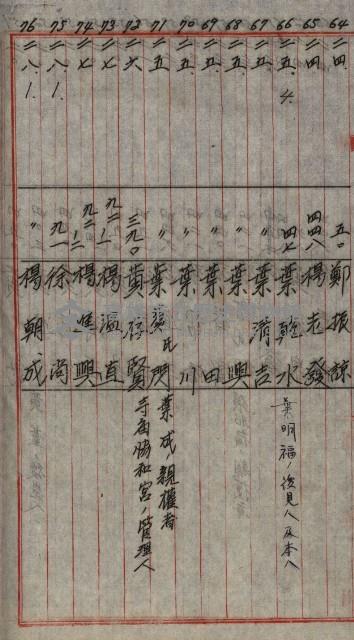 64 二四. 五〇 鄭振諒
65 二四 四四八 楊老發
66 二五.4. 四七 葉乾水 葉明福ノ後見人及本人
67 二五. 〃 葉清吉
68 二五. 〃 葉興
69 二五. 〃 葉田
70 二五. 〃 葉川
71 二五. 〃 葉 氏 葉成ノ親權者
72 二六 三九〇 黃 賢 寺廟協和宮ノ管理人
73 二七 九二ノ一 楊溫直
74 二七 九二ノ二 楊進興
75 二八.1. 九一 徐尚
76 二八.1. 〃 楊朝成